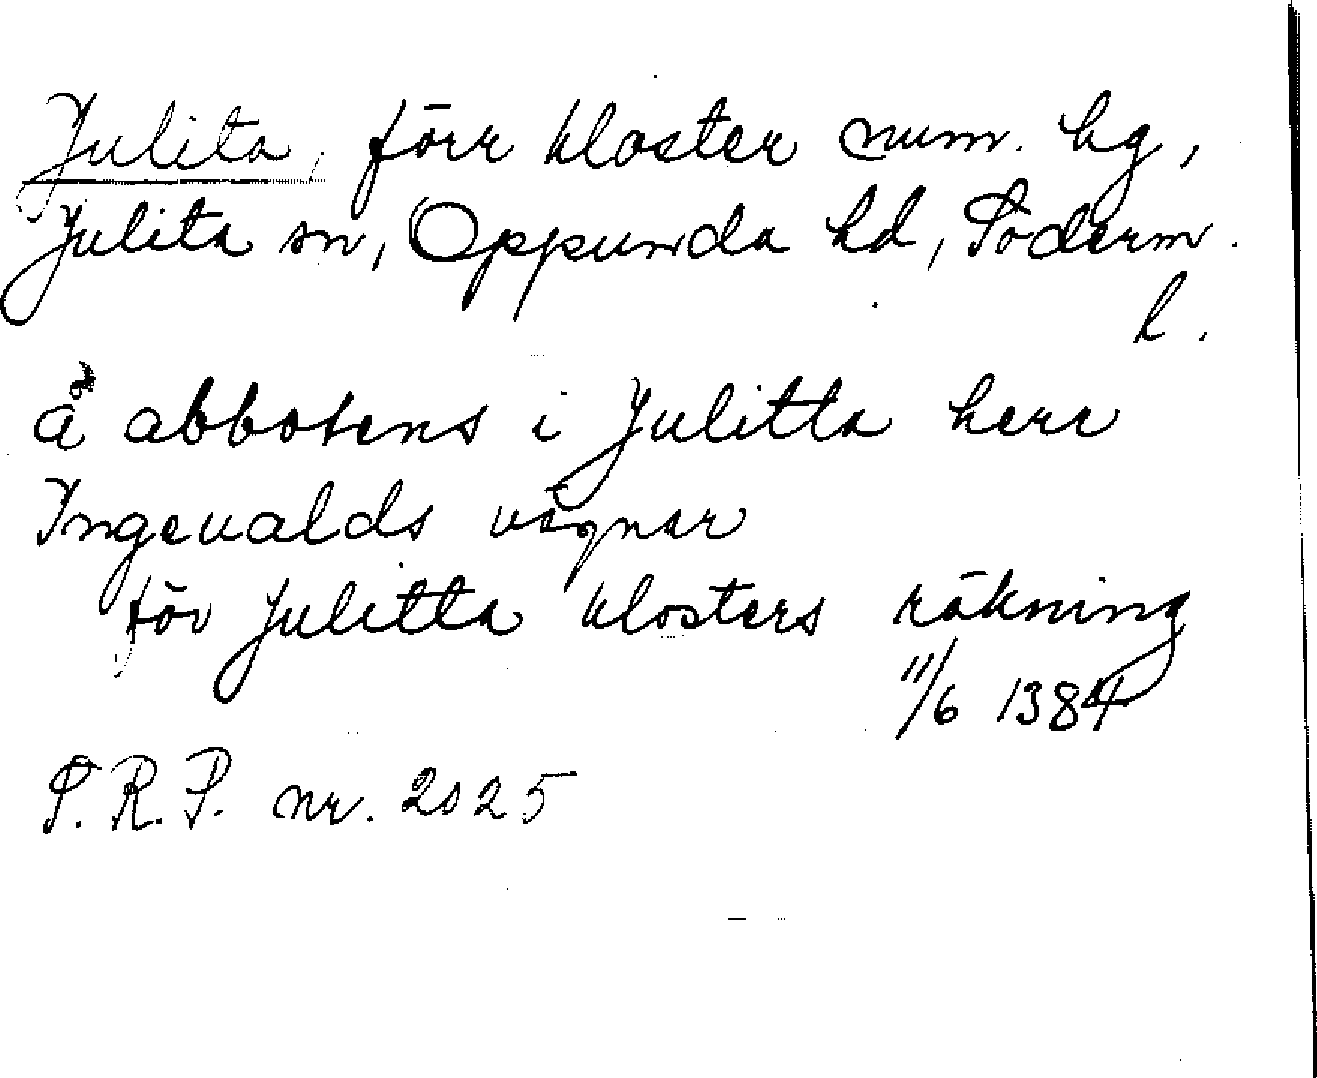 Julita, förr kloster num. hg,
Julita sn, Oppunda hd, Söderm.
l.
å abbotens i Julitta herr
Ingevalds vägnar
för Julitta klosters räkning
11/6 1384
S.R.P. nr. 2025